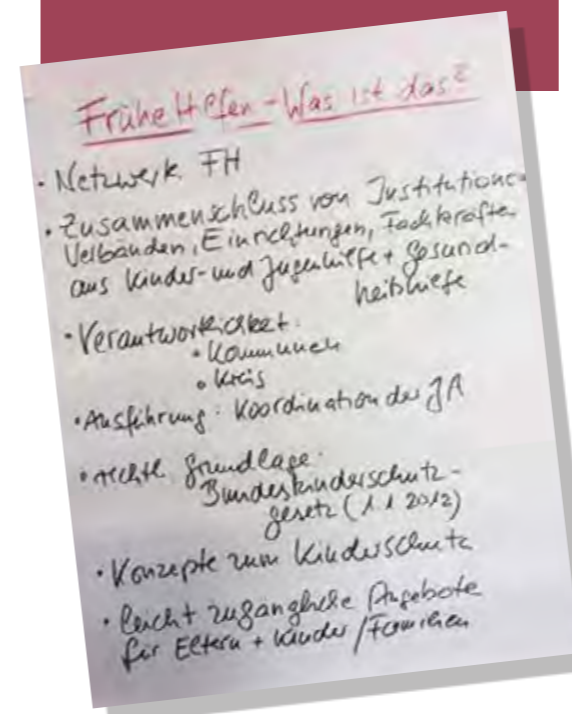 Frühe Hilfen - Was ist das?
• Netzwerk FH
• Zusammenschluss von Institutionen
Verbänden, Einrichtungen, Fachkräften
aus Kinder- und Jugendhilfe + Gesund-
heitshilfe
• Verantwortlichkeit:
• Kommunen
• Kreis
• Ausführung: Koordination der JA
• rechtl. Grundlage:
Bundeskinderschutz-
gesetz (1.1.2012)
• Konzepte zum Kinderschutz
• leicht zugängliche Angebote
für Eltern + Kinder / Familien